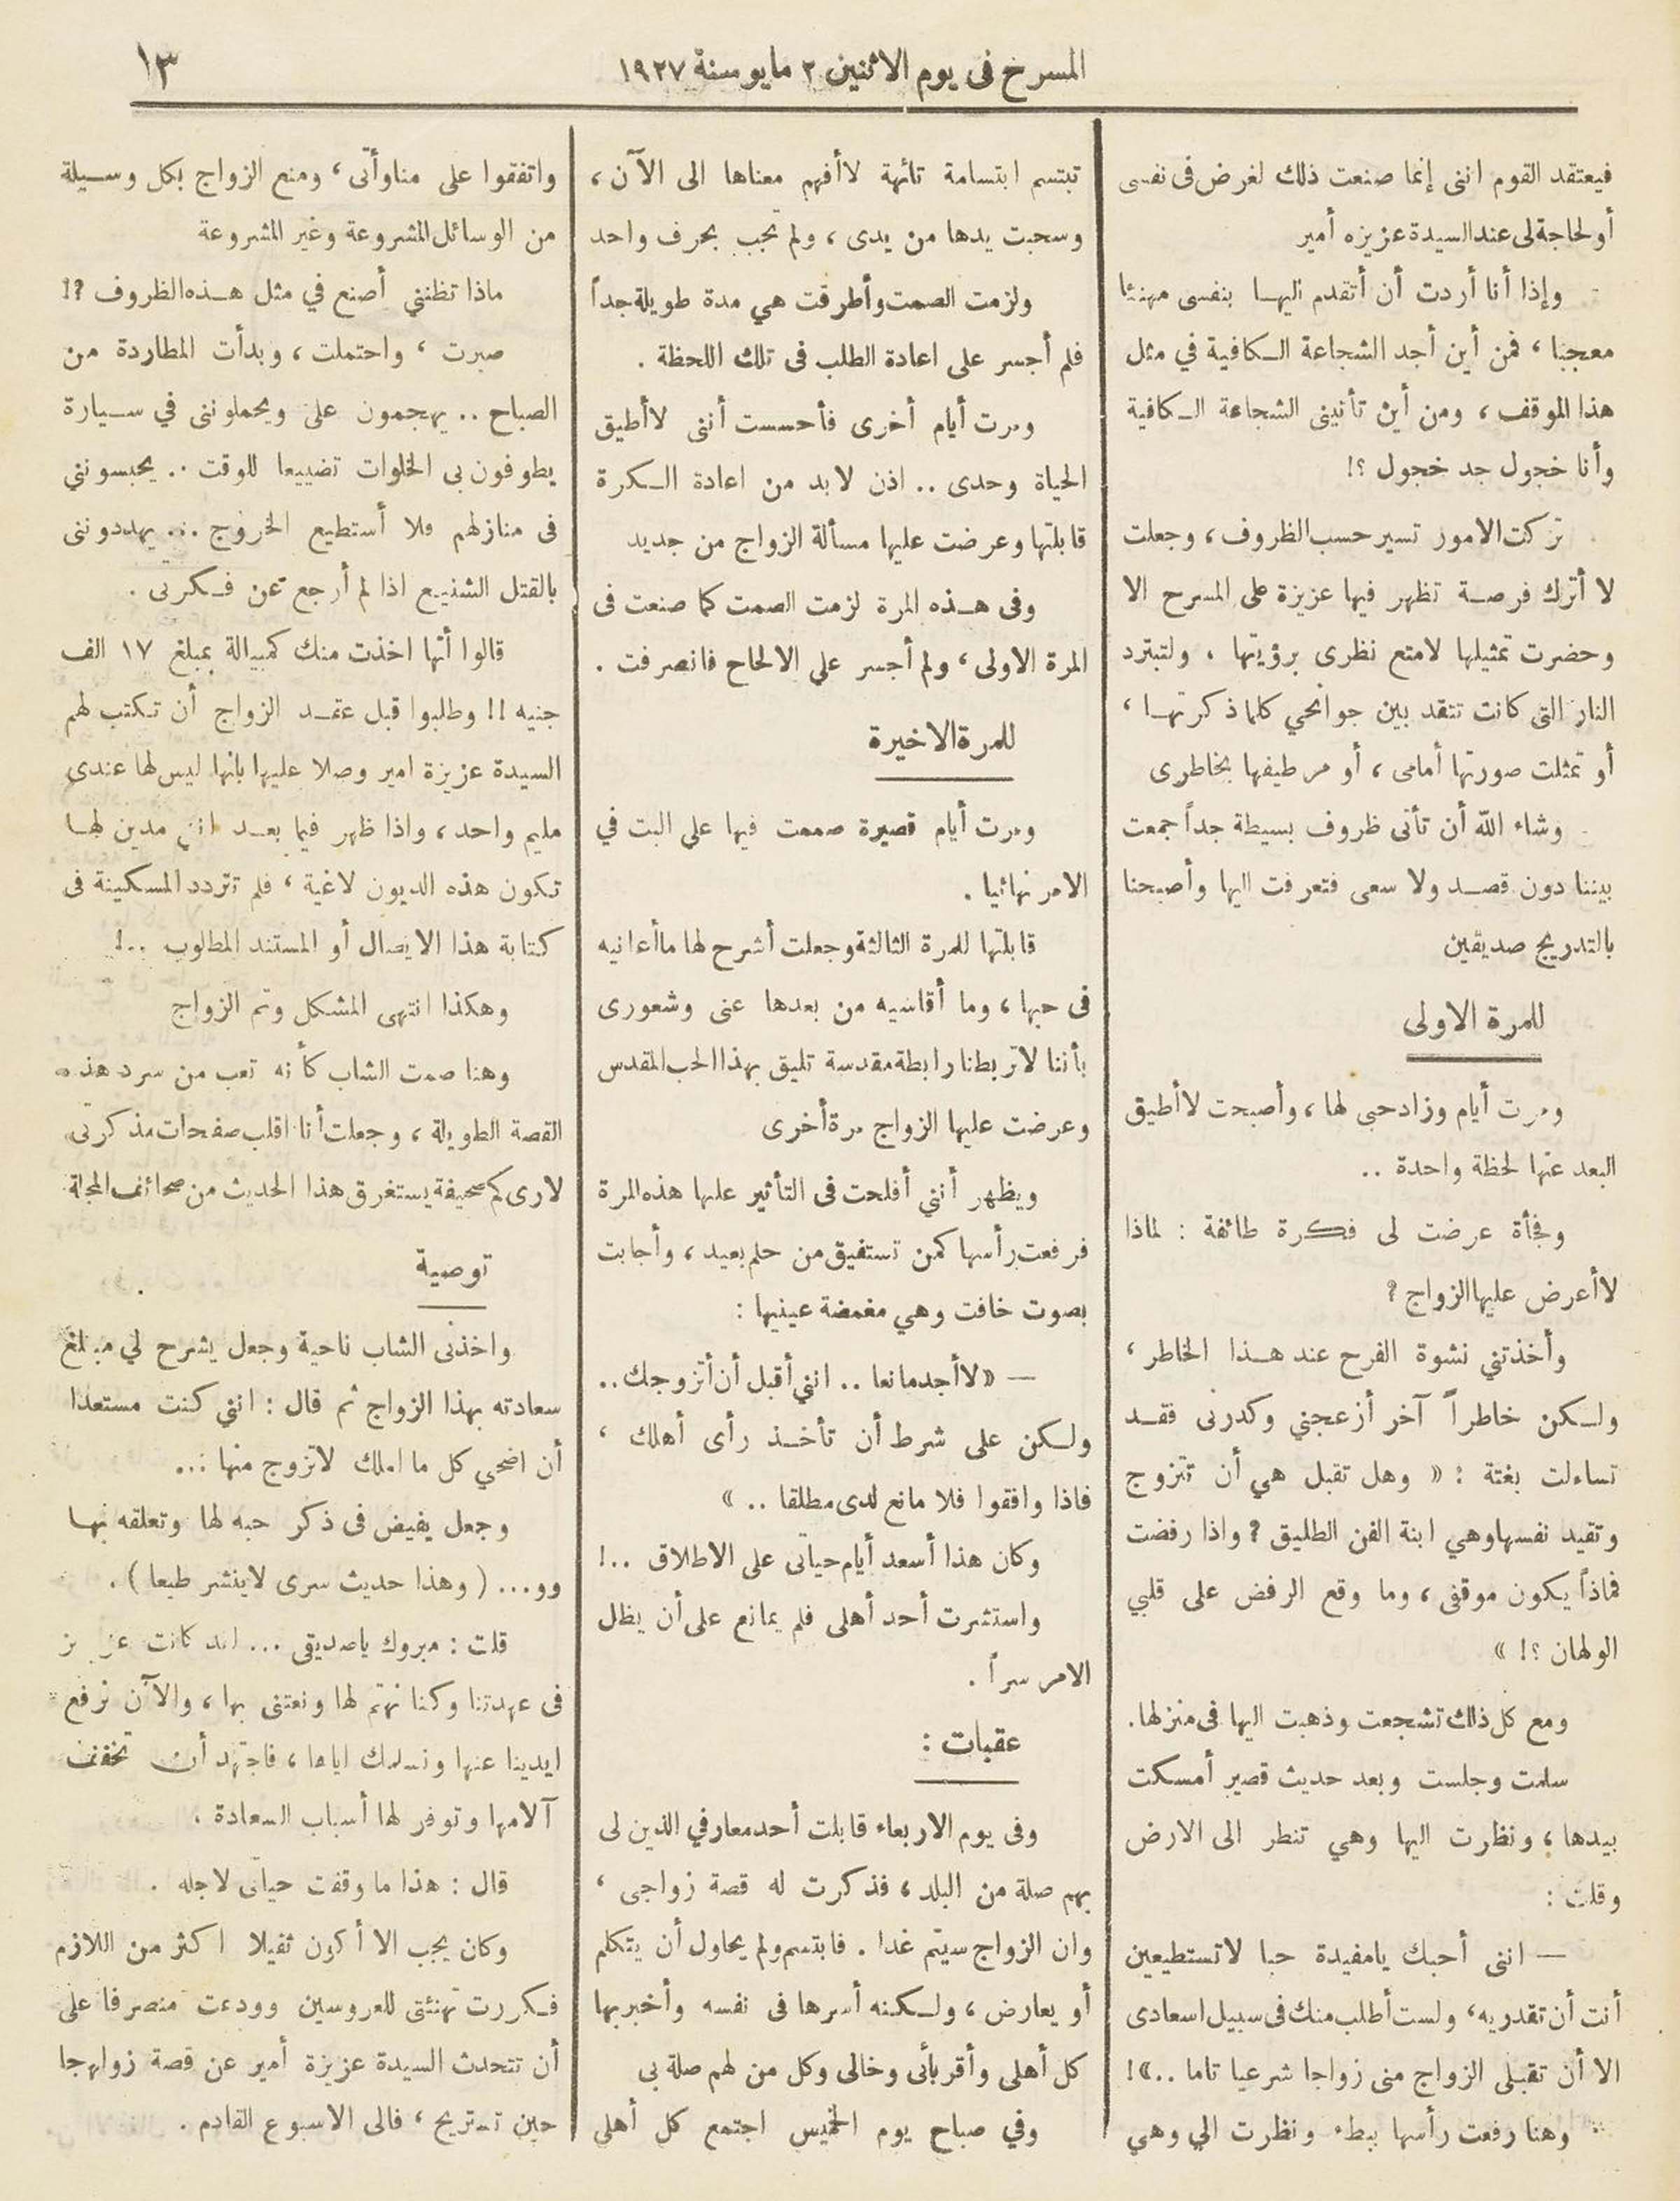 المسرح فى يوم الاثنين ٢ مايو سنة ١٩٢٧
١٣
فيعتقد القوم اننى إنما صنعت ذلك لغرض فى نفسى
أو لحاجة لى عند السيدة عزيزه أمير
وإذا أنا أردت أن أتقدم اليها بنفسى مهنئا
معجبا ، فمن أين أجد الشجاعة الكافية في مثل
هذا الموقف ، ومن أين تأتينى الشجاعة الكافية
وأنا خجول جد خجول ؟!
تركت الامور تسير حسب الظروف ، وجعلت
لا أترك فرصة تظهر فيها عزيزة على المسرح الا
وحضرت تمثيلها لامتع نظرى برؤيتها ، ولتبترد
النار التى كانت تتقد بين جوانحي كلما ذكرتها ،
أو تمثلت صورتها أمامى ، أو مر طيفها بخاطرى
وشاء الله أن تأتى ظروف بسيطة جداً جمعت
بيننا دون قصد ولا سعى فتعرفت اليها وأصبحنا
بالتدريج صديقين
للمرة الاولى
ومرت أيام وزاد حبى لها ، وأصبحت لا أطيق
البعد عنها لحظة واحدة ..
وفجأة عرضت لى فكرة طائفة : لماذا
لا أعرض عليها الزواج ?
وأخذتني نشوة الفرح عند هذا الخاطر ،
ولكن خاطراً آخر أزعجني وكدرنى فقد
تساءلت بغتة : « وهل تقبل هي أن تتزوج
وتقيد نفسها وهي ابنة الفن الطليق ? واذا رفضت
فماذا يكون موقفى ، وما وقع الرفض على قلبي
الولهان ؟! »
ومع كل ذلك تشجعت وذهبت اليها فى منزلها .
سلمت وجلست وبعد حديث قصير أمسكت
بيدها ، ونظرت اليها وهي تنظر الى الارض
وقلت :
— اننى أحبك يامفيدة حبا لا تستطيعين
أنت أن تقدريه ، ولست أطلب منك فى سبيل اسعادى
الا أن تقبلى الزواج منى زواجا شرعيا تاما ..» !
وهنا رفعت رأسها ببطء ونظرت الي وهي
تبتسم ابتسامة تائهة لا أفهم معناها الى الآن ،
وسحبت يدها من يدى ، ولم تجب بحرف واحد
ولزمت الصمت وأطرقت هي مدة طويلة جداً
فلم أجسر على اعادة الطلب فى تلك اللحظة .
ومرت أيام أخرى فأحسست أننى لا أطيق
الحياة وحدى .. اذن لابد من اعادة الكرة
قابلتها وعرضت عليها مسألة الزواج من جديد
وفى هذه المرة لزمت الصمت كما صنعت فى
المرة الاولى ، ولم أجسر على الالحاح فانصرفت .
للمرة الاخيرة
ومرت أيام قصيرة صممت فيها على البت في
الامر نهائيا .
قابلتها للمرة الثالثة وجعلت أشرح لها ما أعانيه
فى حبها ، وما أقاسيه من بعدها عنى وشعورى
بأننا لا تربطنا رابطة مقدسة تليق بهذا الحب المقدس
وعرضت عليها الزواج مرة أخرى
ويظهر أنني أفلحت فى التأثير عليها هذه المرة
فرفعت رأسها كمن تستفيق من حلم بعيد ، وأجابت
بصوت خافت وهي مغمضة عينيها :
— « لا أجد مانعا .. انني أقبل أن أتزوجك ..
ولكن على شرط أن تأخذ رأى أهلك ،
فاذا وافقوا فلا مانع لدى مطلقا .. »
وكان هذا أسعد أيام حياتى على الاطلاق ..!
واستشرت أحد أهلى فلم يمانع على أن يظل
الامر سراً .
عقبات :
وفى يوم الاربعاء قابلت أحد معارفي الذين لى
بهم صلة من البلد ، فذكرت له قصة زواجى ،
وان الزواج سيتم غدا . فابتسم ولم يحاول أن يتكلم
أو يعارض ، ولكنه أسرها فى نفسه وأخبر بها
كل أهلى وأقربائى وخالى وكل من لهم صلة بى
وفي صباح يوم الخميس اجتمع كل أهلى
واتفقوا على مناوأتى ، ومنع الزواج بكل وسيلة
من الوسائل المشروعة وغير المشروعة
ماذا تظنني أصنع في مثل هذه الظروف ?!
صبرت ، واحتملت ، وبدأت المطاردة من
الصباح .. يهجمون على ويحملوننى في سيارة
يطوفون بى الخلوات تضييعا للوقت .. يحبسونني
فى منازلهم فلا أستطيع الخروج ... يهددوننى
بالقتل الشنيع اذا لم أرجع عن فكرتى .
قالوا أنها اخذت منك كمبيالة بمبلغ ١٧ الف
جنيه !! وطلبوا قبل عقد الزواج أن تكتب لهم
السيدة عزيزة امير وصلا عليها بانها ليس لها عندى
مليم واحد ، واذا ظهر فيما بعد اننى مدين لها
تكون هذه الديون لاغية ، فلم تتردد المسكينة فى
كتابة هذا الايصال أو المستند المطلوب ..!
وهكذا انتهى المشكل وتم الزواج
وهنا صمت الشاب كأنه تعب من سرد هذه
القصة الطويلة ، وجعلت أنا اقلب صفحات مذكرتى
لارى كم صحيفة يستغرق هذا الحديث من صحائف المجلة
توصية
واخذنى الشاب ناحية وجعل يشرح لي مبلغ
سعادته بهذا الزواج ثم قال : انني كنت مستعدا
أن اضحي كل ما املك لاتزوج منها ...
وجعل يفيض فى ذكر حبه لها وتعلقه بها
وو... ( وهذا حديث سرى لا ينشر طبعا ) .
قلت : مبروك ياصديقى ... لقد كانت
فى عهدتنا وكنا نهتم لها ونعتنى بها ، والآن نرفع
ايدينا عنها ونسلمك اياها ، فاجتهد أن تخفف
آلامها وتوفر لها أسباب السعادة .
قال : هذا ما وقفت حياتى لاجله .
وكان يجب الا أكون ثقيلا اكثر من اللازم
فكررت تهنئتى للعروسين وودعت منصرفا على
أن تتحدث السيدة عزيزة أمير عن قصة زواجها
حين تستريح ، فالى الاسبوع القادم .